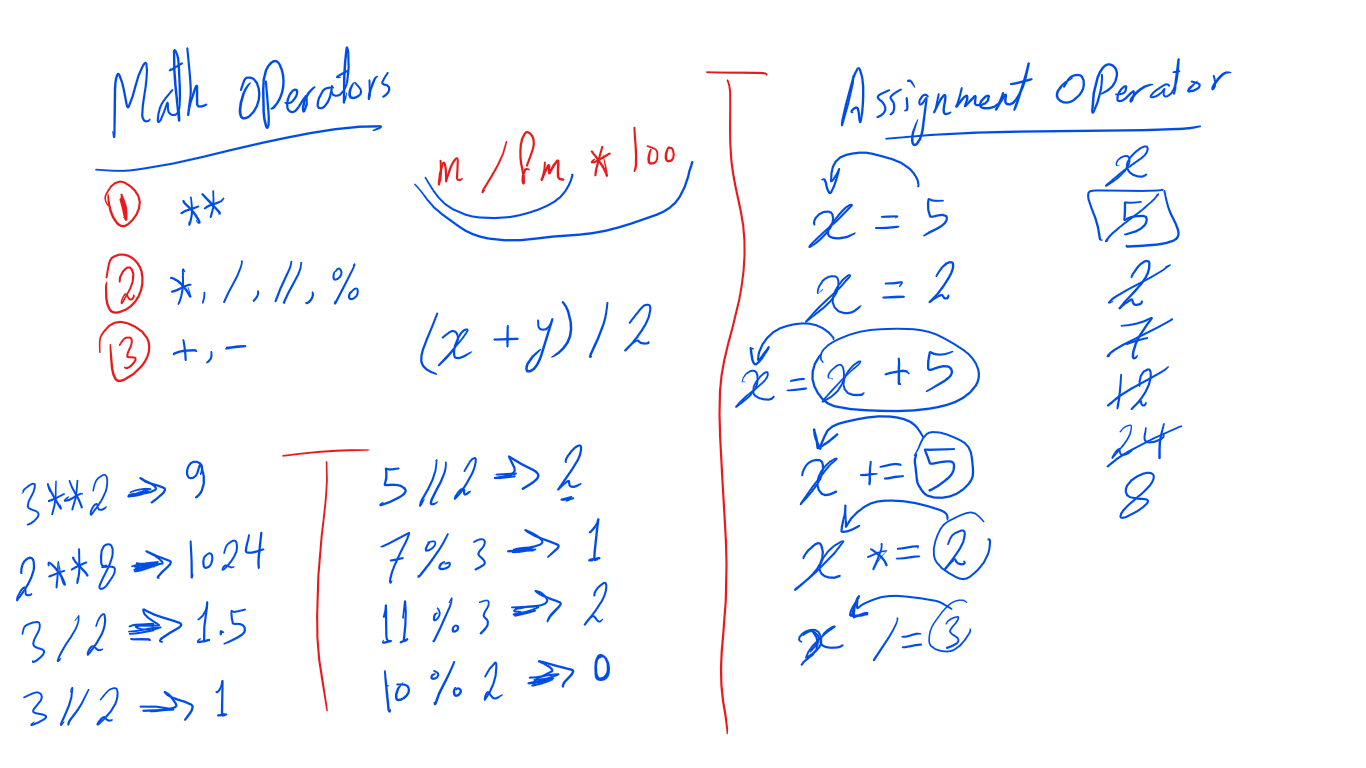 Math Operators
m / fm * 100
① **
② *, /, //, %
③ +, -
(x + y) / 2
3**2 => 9
2**8 => 1024
3 / 2 => 1.5
3 // 2 => 1
5 // 2 => 2
7 % 3 => 1
11 % 3 => 2
10 % 2 => 0
Assignment Operator
x = 5
x = 2
x = x + 5
x += 5
x *= 2
x /= 3
x
5
2
7
12
24
8